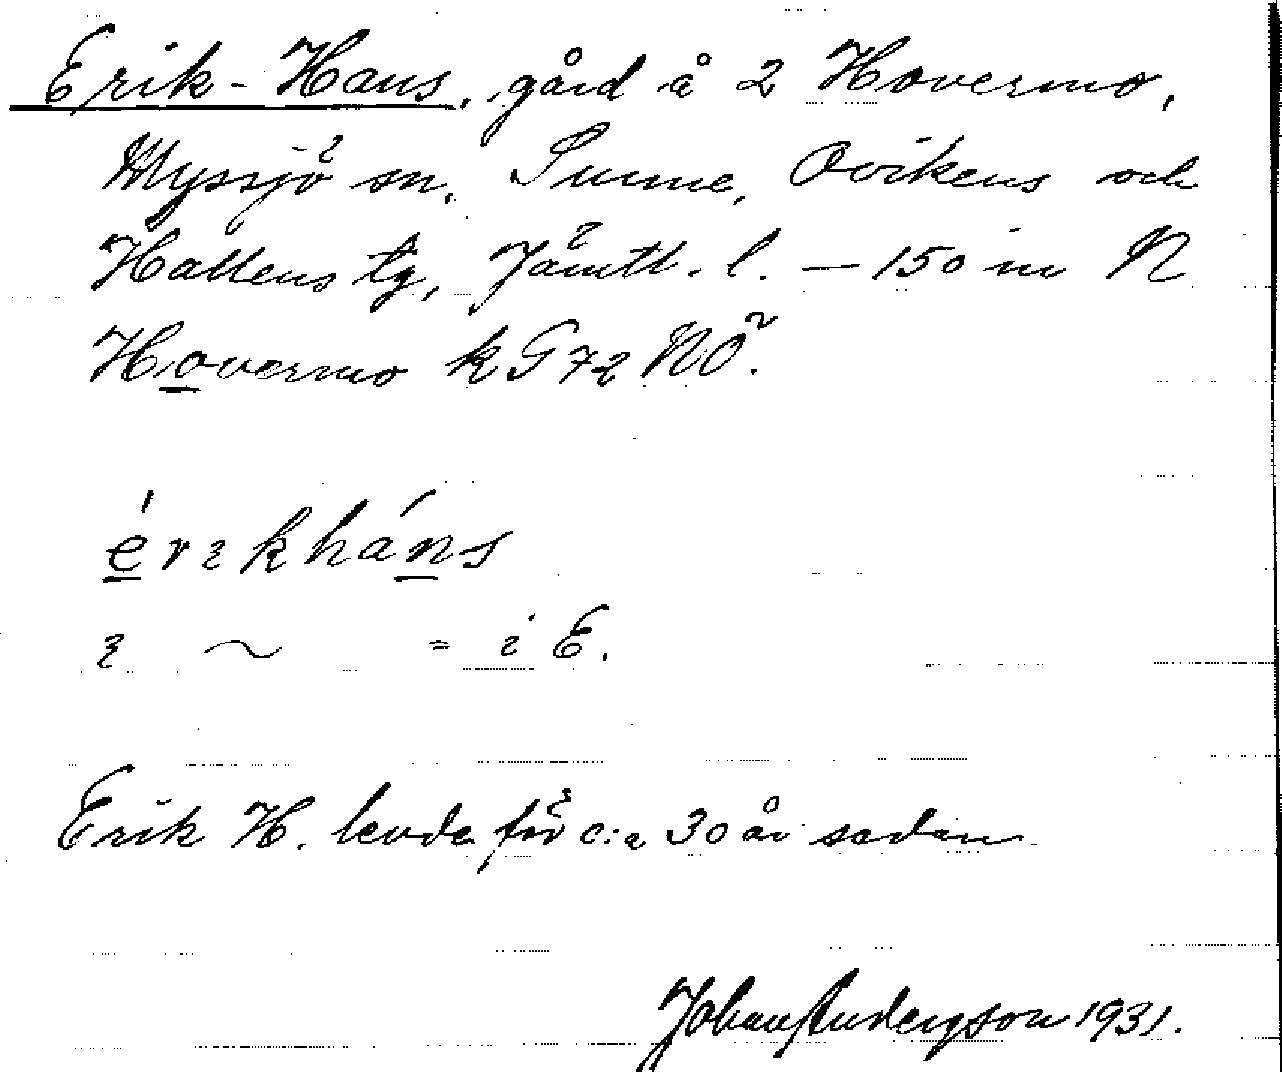 Erik-Hans, gård å 2 Hovermo,
Myssjö sn, Sunne, Ovikens och
Hallens tg, Jämtl. l. — 150 m N
Hovermo k G 72 NÖ.
érıkháns
ı ~ = i E.
Erik H. levde för c:a 30 år sedan
Johan Anderzson 1931.